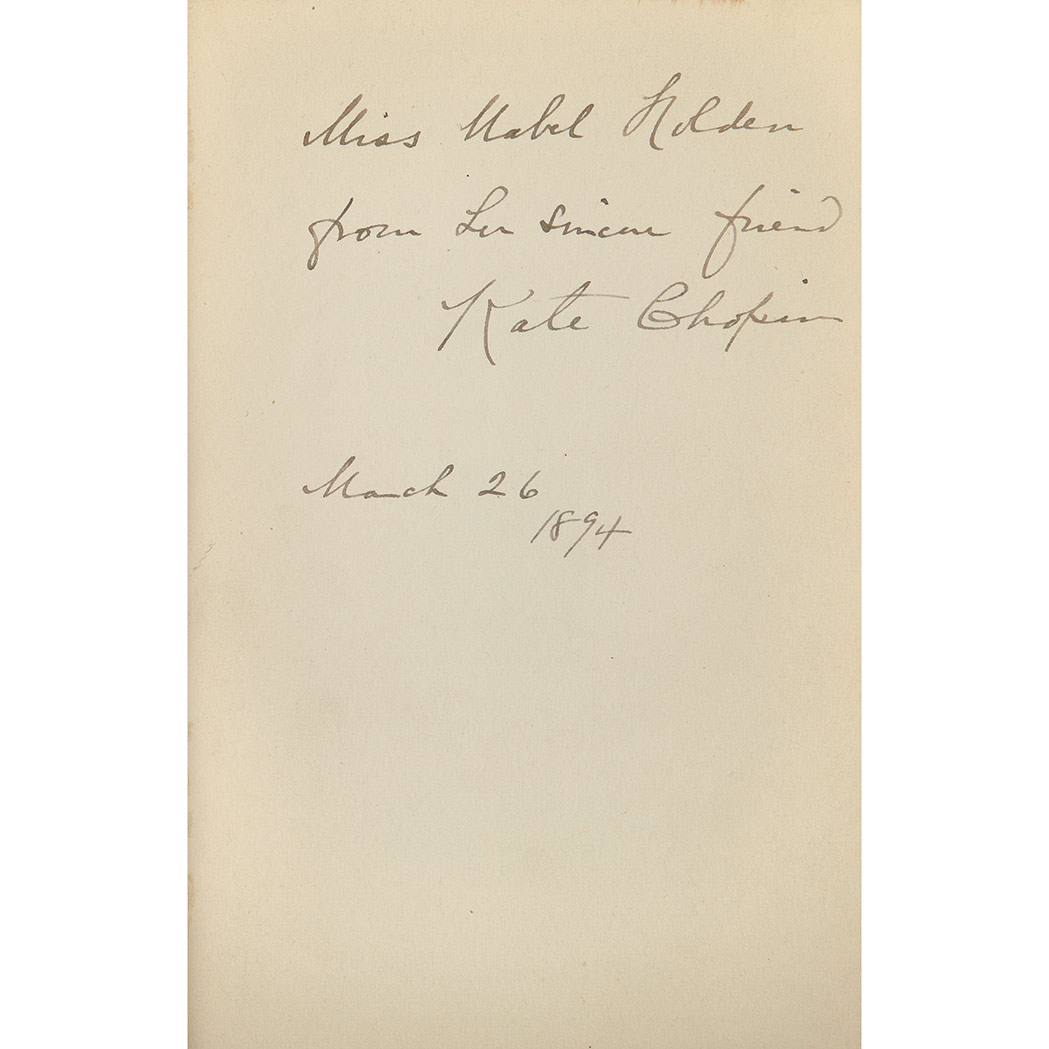 Miss Mabel Holden
from her sincere friend
Kate Chopin
March 26
1894